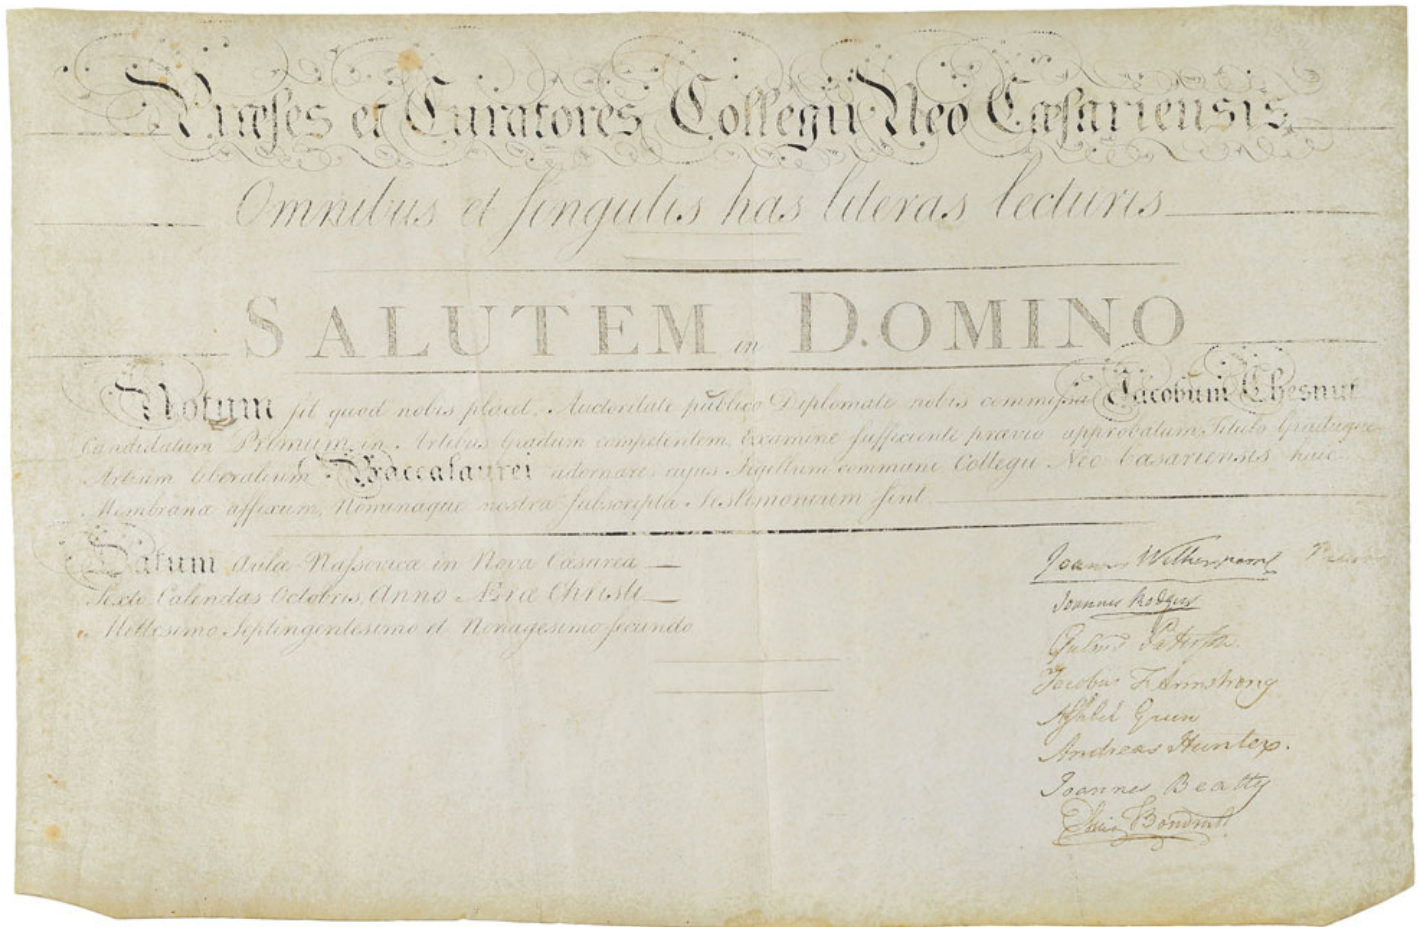 Præses et Curatores Collegii Neo Cæsariensis
Omnibus et singulis has literas lecturis
SALUTEM in DOMINO
Notum sit quod nobis placet, Auctoritate publico Diplomate nobis commissa Jacobum Chesnut
Candidatum Primum in Artibus Gradum competentem, Examine sufficiente prævio approbatum, Titulo Graduque
Artium liberalium Baccalaurei adornare. cujus Sigillum commune Collegii Neo Cæsariensis huic
Membranæ affixum, Nominaque nostra subscripta Testimonium sint
Datum Aulæ Nassovicæ in Nova Cæsarea
Sexto Calendas Octobris, Anno Æræ Christi
Millesimo Septingentesimo et Nonagesimo secundo
Joannes Witherspoon
Joannes Rodgers
Jacobus F Armstrong
Ashbel Green
Andreas Hunter.
Joannes Beatty